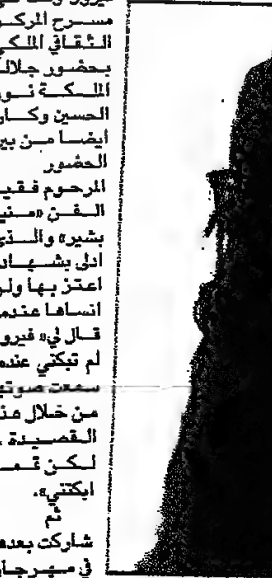 مسرح المركز
الثقافي الملكي
بحضور جلالة
الملكة نور
الحسين وكان
ايضا من بين
الحضور
المرحوم فقيد
الفن «منير
بشير» والذي
ادلى بشهادة
اعتز بها ولن
انساها عندما
قال لي» فيروز
لم تبكني عندما
سمعت صوتها
من خلال هذه
القصيدة
لكن قمر
ابكتني».
ثم
شاركت بعدها
في مهرجان